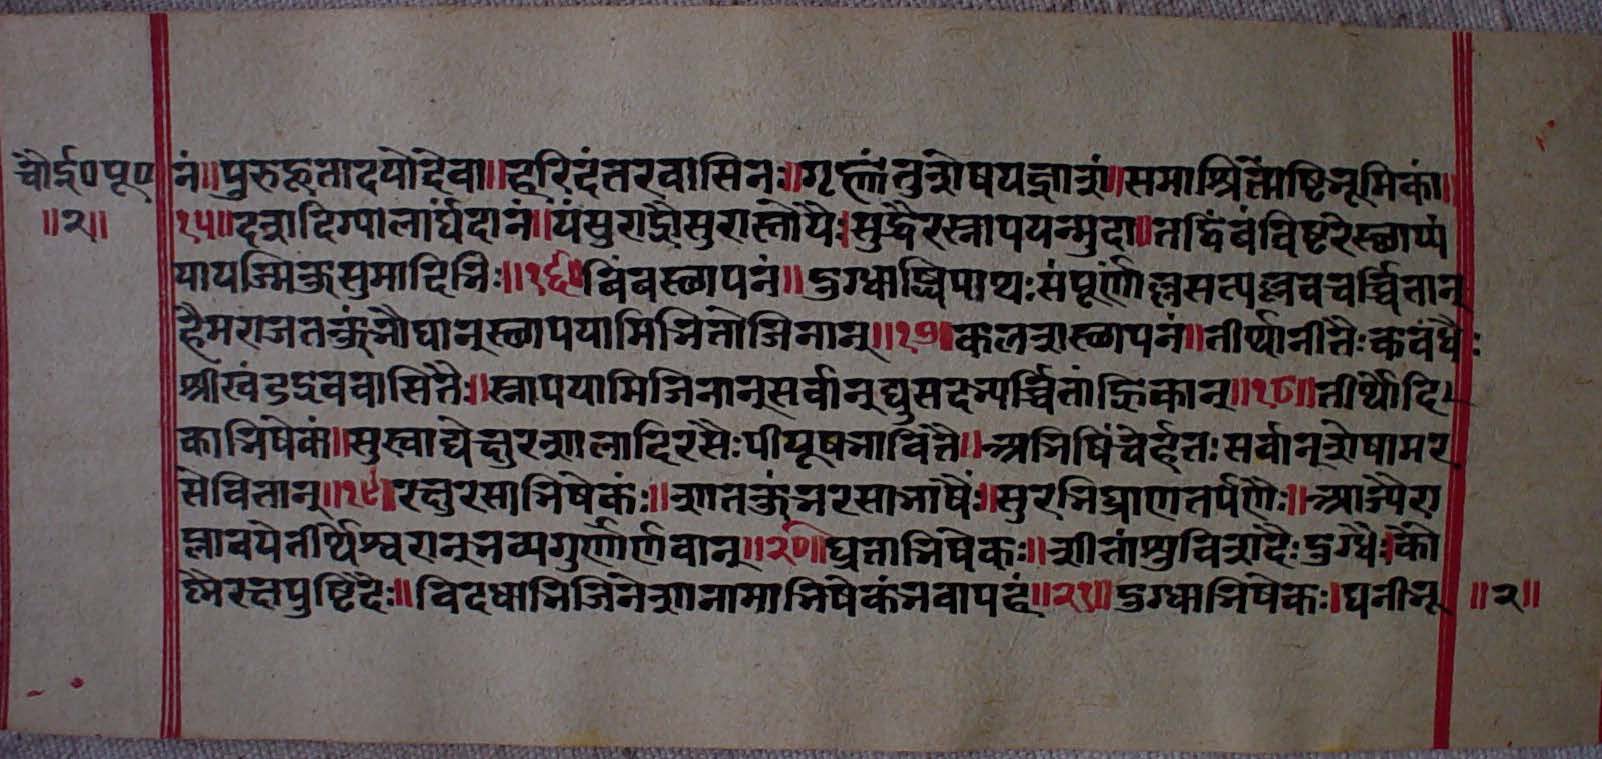 चौई० पू० नं॥ पुरुहूतादयो देवा॥ हरिदंतरवासिनः॥ गृह्णंतु शेषयज्ञाशं॥ समाश्रित्येष्टिभूमिकां॥
॥२॥ १५॥ दशदिग्पालार्घदानं॥ यं सुराद्रौ सुरास्तोयैः। सुद्धैरस्नापयन्मुदा॥ तद्बिंबं विष्टरे स्थाप्य
यायज्मि कुसुमादिभिः॥१६॥ बिंबस्थापनं॥ दुग्धाब्धिपाथःसंपूर्णोल्लसत्पल्लवचर्च्चितान्
हैमराजतकुंभौघान् स्थापयाभिभितो जिनान्॥१७॥ कलशस्थापनं॥ तीर्थानीतैः कबंधैः
श्रीखंडद्रववासितैः॥ स्नापयामि जिनान् सर्वान् द्युसदभ्यर्च्चितांह्रिकान्॥१८॥ तीर्थोदि
काभिषेकं॥ सुस्वाद्येक्षुरशालादिरसैः पीयूषभावितै॥ अभिषिंचेर्हतः सर्वान् शेषामर
सेवितान्॥१९॥ रक्षुरसाभिषेकं॥ शातकुंभरसाभाषैं॥ सुरभिघ्राणतर्पणैः॥ आज्यैरा
प्लावये तीर्थेश्वरान् भव्यगुर्णार्णवान्॥२०॥ घृताभिषेकः॥ शीतांशुविशदैः दुग्धैः। को
ष्णैस्त्क्षपुष्टिदैः॥ विदधाभि जिनेशानामाभिषेकं भवापहं॥२१॥ दुग्धाभिषेकः। घनीभू ॥२॥